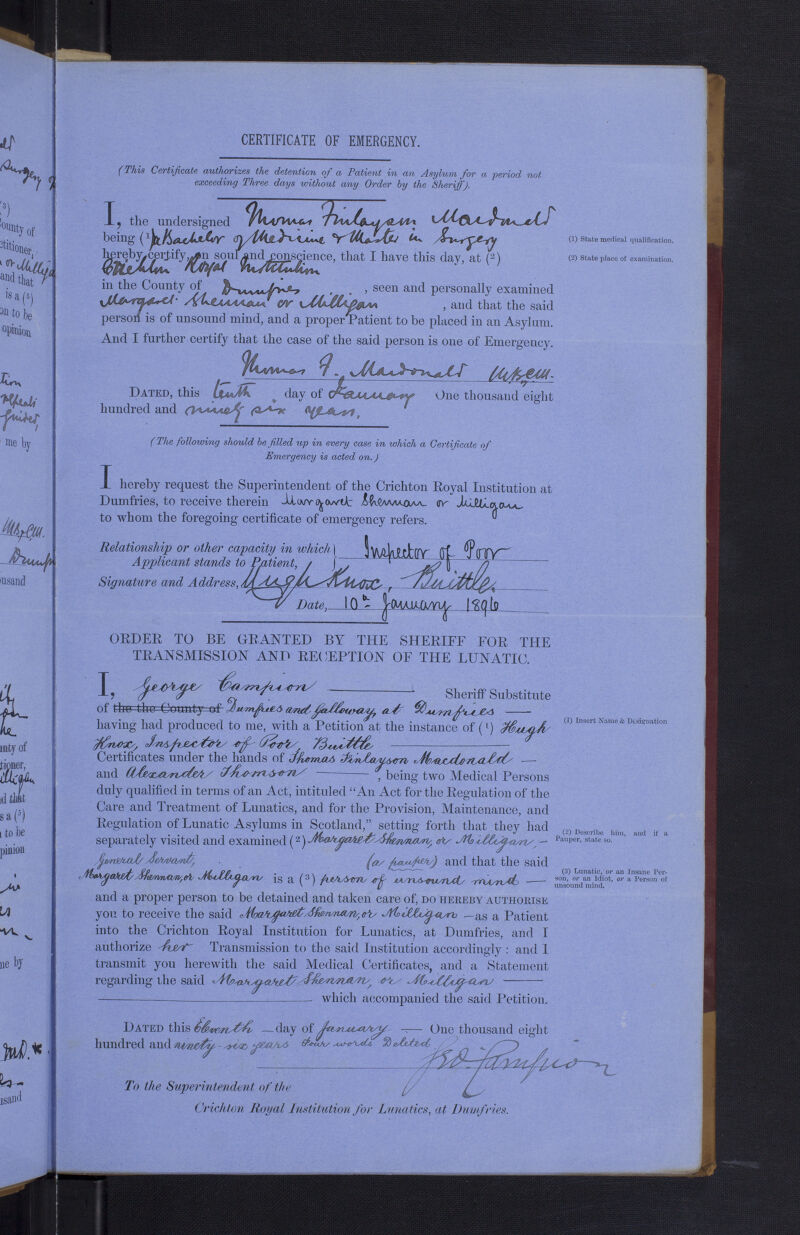 CERTIFICATE OF EMERGENCY.
(This Certificate authorizes the detention of a Patient in an Asylum for a period not
exceeding Three days without any Order by the Sheriff).
I, the undersigned Thomas Finlayson Macdonald
being (1) a Bachelor of Medicine & Master in Surgery
(1) State medical qualification.
hereby certify, on soul and conscience, that I have this day, at (2)
(2) State place of examination.
Crichton Royal Institution
in the County of Dumfries , seen and personally examined
Margaret Shennan or Milligan , and that the said
person is of unsound mind, and a proper Patient to be placed in an Asylum.
And I further certify that the case of the said person is one of Emergency.
Thomas F. Macdonald M.B., C.M.
DATED, this tenth day of January One thousand eight
hundred and ninety six years.
(The following should be filled up in every case in which a Certificate of
Emergency is acted on.)
I hereby request the Superintendent of the Crichton Royal Institution at
Dumfries, to receive therein Margaret Shennan or Milligan
to whom the foregoing certificate of emergency refers.
Relationship or other capacity in which
Applicant stands to Patient, Inspector of Poor
Signature and Address, Hugh Knox, Buittle.
Date, 10th January 1896
ORDER TO BE GRANTED BY THE SHERIFF FOR THE
TRANSMISSION AND RECEPTION OF THE LUNATIC.
I, George Campion Sheriff Substitute
of the the County of Dumfries and Galloway, at Dumfries
having had produced to me, with a Petition at the instance of (1) Hugh
(1) Insert Name & Designation
Knox, Inspector of Poor, Buittle
Certificates under the hands of Thomas Finlayson Macdonald
and Alexander Thomson , being two Medical Persons
duly qualified in terms of an Act, intituled "An Act for the Regulation of the
Care and Treatment of Lunatics, and for the Provision, Maintenance, and
Regulation of Lunatic Asylums in Scotland," setting forth that they had
separately visited and examined (2) Margaret Shennan, or Milligan
(2) Describe him, and if a
Pauper, state so.
General Servant, (a pauper) and that the said
Margaret Shennan, or Milligan is a (3) person of unsound mind
(3) Lunatic, or an Insane Per-
son, or an Idiot, or a Person of
unsound mind.
and a proper person to be detained and taken care of, DO HEREBY AUTHORISE
you to receive the said Margaret Shennan, or Milligan — as a Patient
into the Crichton Royal Institution for Lunatics, at Dumfries, and I
authorize her Transmission to the said Institution accordingly : and I
transmit you herewith the said Medical Certificates, and a Statement
regarding the said Margaret Shennan, or Milligan
which accompanied the said Petition.
DATED this Eleventh day of January One thousand eight
hundred and ninety-six years Four words Deleted
Geo. Campion
To the Superintendent of the
Crichton Royal Institution for Lunatics, at Dumfries.